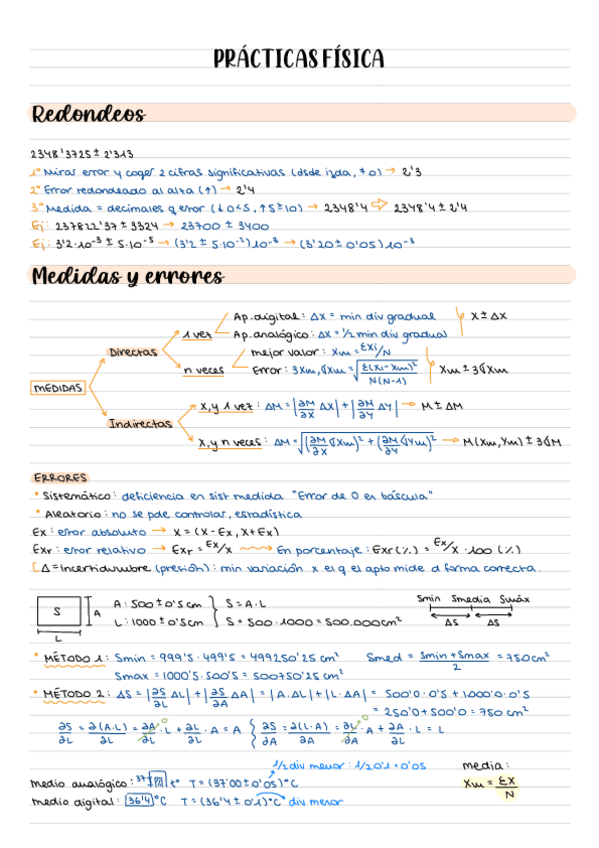 PRÁCTICAS FÍSICA
Redondeos
2348'3725 ± 2'313
1º Mirar error y coger 2 cifras significativas (dsde izda, ≠0) → 2'3
2º Error redondeado al alta (↑) → 2'4
3º Medida = decimales q error (↓0<5, ↑5≥10) → 2348'4 ⇨ 2348'4 ± 2'4
Ej: 237822'37 ± 3324 → 23700 ± 3400
Ej: 3'2·10⁻³ ± 5·10⁻⁵ → (3'2 ± 5·10⁻²)10⁻³ → (3'20 ± 0'05)10⁻³
Medidas y errores
MEDIDAS
Directas
1 vez
Ap. digital: ΔX = min div gradual
Ap. analógico: ΔX = 1/2 min div gradual
X ± ΔX
n veces
mejor valor: Xm = ΣXi/N
Error: 3Xm, σXm = √(Σ(Xi-Xm)²/N(N-1))
Xm ± 3σXm
Indirectas
x,y 1 vez: ΔM = |∂M/∂X ΔX| + |∂M/∂Y ΔY| → M ± ΔM
x,y n veces: ΔM = √((∂M/∂X σXm)² + (∂M/∂Y σYm)²) → M(Xm,Ym) ± 3σM
ERRORES
* Sistemático: deficiencia en sist medida "Error de 0 en báscula"
* Aleatorio: no se pde controlar, estadística
Ex: error absoluto → X = (X - Ex, X + Ex)
Exr: error relativo → Exr = Ex/X → En porcentaje: Exr(%) = Ex/X · 100 (%)
[Δ = incertidumbre (presión): min variación x el q el apto mide d forma correcta.
S
A
L
A: 500 ± 0'5 cm
L: 1000 ± 0'5 cm
S = A·L
S = 500·1000 = 500.000cm²
Smin Smedia Smáx
ΔS ΔS
* MÉTODO 1: Smin = 999'5 · 499'5 = 499250'25 cm² Smed = Smin + Smax / 2 = 750cm²
Smax = 1000'5 · 500'5 = 500750'25 cm²
* MÉTODO 2: ΔS = |∂S/∂L ΔL| + |∂S/∂A ΔA| = |A·ΔL| + |L·ΔA| = 500'0·0'5 + 1000'0·0'5
= 250'0 + 500'0 = 750 cm²
∂S/∂L = ∂(A·L)/∂L = ∂A/∂L · L + ∂L/∂L · A = A { ∂S/∂A = ∂(L·A)/∂A = ∂L/∂A · A + ∂A/∂A · L = L
0
0
1/2 div menor: 1/2 0'1 = 0'05
medio analógico: 37 tº T = (37'00 ± 0'05)ºC
medio digital: 36'4 ºC T = (36'4 ± 0'1)ºC div menor
media:
Xm = ΣX/N